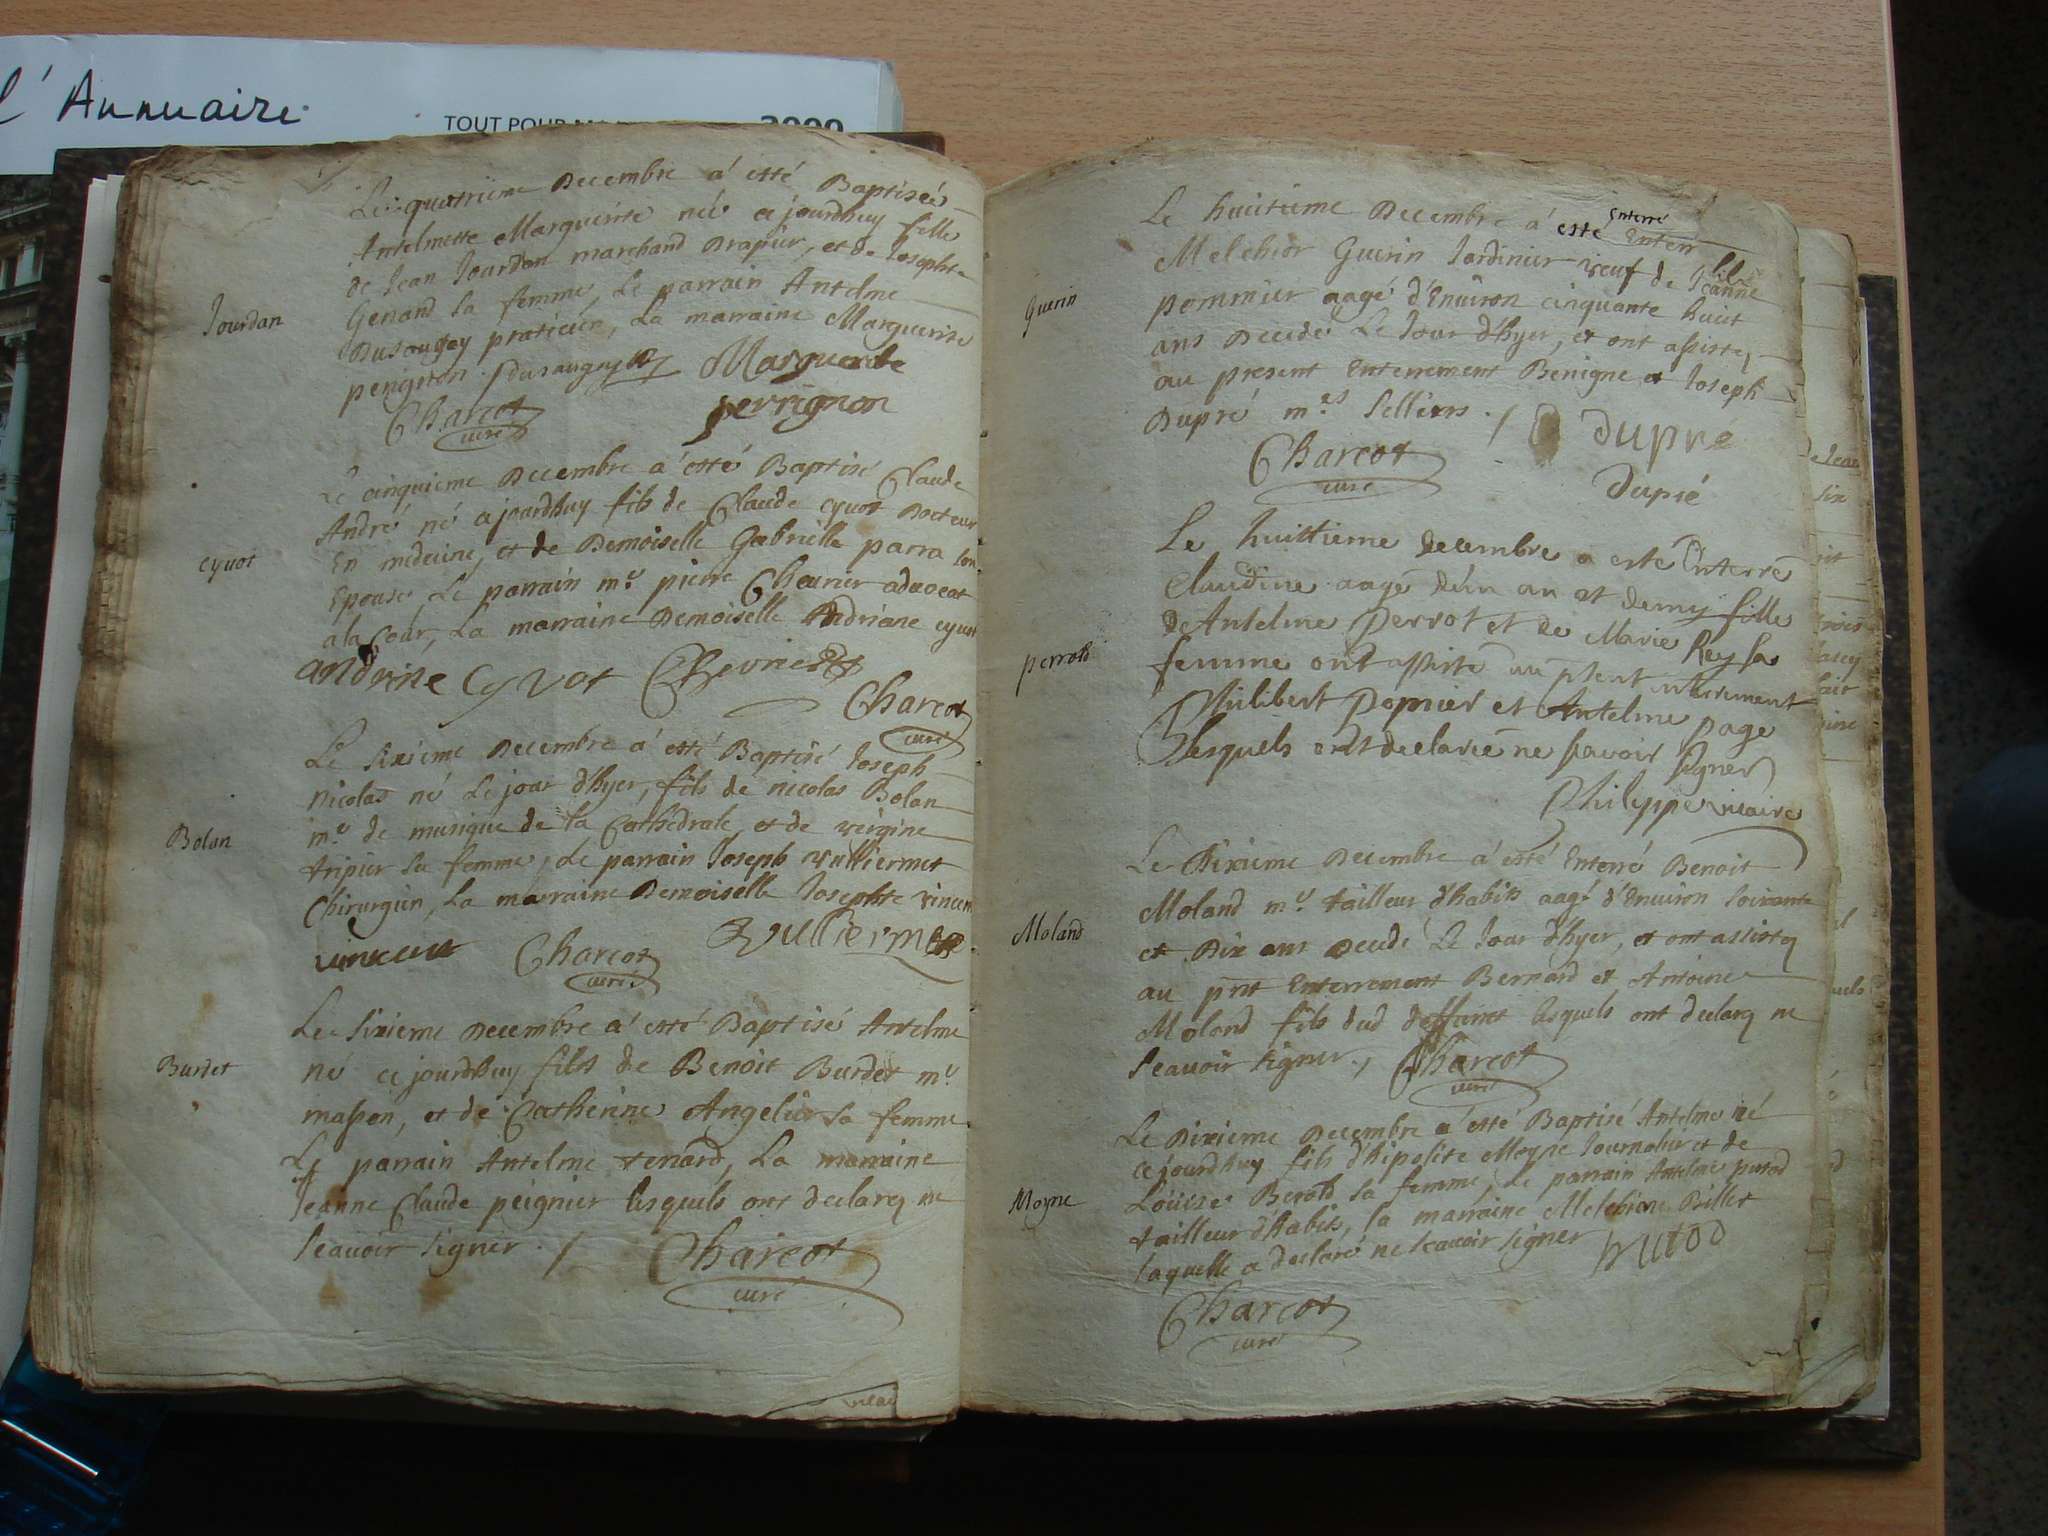 l'Annuaire
TOUT POUR
Le quatrieme Decembre a' esté Baptiseé
Antelmette Marguerite neé cejourdhuy fille
de Jean Jourdan marchand Drapier, et de Josephte
Jourdan
Genand sa femme, Le parrain Antelme
Dusaugey praticien, La marraine Marguerite
perignon ./. Dusaugey Marguerite
perrignon
Charcot
curé
Le cinquieme Decembre a' esté Baptisé Claude
André né cejourdhuy fils de Claude cyvot Docteur
cyvot
En medecine, et de Demoiselle Gabrielle parra son
Epouse, Le parrain m.e pierre Chevrier advocat
a la Cour, La marraine Demoiselle Andriane cyvot
andrine Cyvot Chevrier
Charcot
curé
Le sixieme Decembre a' esté Baptisé Joseph
Nicolas né Le jour d'hyer, fils de nicolas Bolan
Bolan
m.e de musique de la Cathedrale, et de reigine
tripier sa femme, Le parrain Joseph vulliermet
Chirurgien, La marraine Demoiselle Josephte vincent
vincent Charcot Vulliermet
curé
Le sixieme Decembre a' esté Baptisé Antelme
Burdet
né cejourdhuy fils de Benoit Burdet m.e
masson, et de Catherine Angelier sa femme
Le parrain Antelme tenard, La marraine
Jeanne Claude peignier lesquels ont declaré ne
sçauoir signer ./. Charcot
curé
Le huictieme Decembre a' esté Enterré
Melchior Guerin Jardinier veuf de Jeanne
Guerin
pommier aagé d'Enuiron cinquante huict
ans Decedé Le Jour d'hyer, et ont assisté
au present Enterrement Benigne et Joseph
Dupré m.es selliers ./. Dupré
Charcot
curé
Dupré
Le huittieme decembre a esté Enterré
Claudine aagé d'un an et demy fille
de Antelme perrot et de Marie Rey sa
perrot
femme ont assisté au pnt enterrement
Philibert pomier et Antelme page
lesquels ont declaré ne savoir signer
Philippe vicaire
Le Dixieme Decembre a' esté Enterré Benoit
Moland m.e tailleur d'habits aagé d'Enuiron soixante
Moland
et Dix ans Decedé Le Jour d'hyer, et ont assisté
au pnt Enterrement Bernard et Antoine
Moland fils dud deffunct lesquels ont declaré ne
sçauoir signer ./. Charcot
curé
Le Dixieme Decembre a' esté Baptisé Antelme né
cejourdhuy fils d'hipolite Moyne Journalier et de
Moyne
Loüise Berold sa femme, Le parrain Antelme putod
tailleur d'habits, la marraine Melchione Billet
laquelle a declaré ne sçauoir signer putod
Charcot
curé